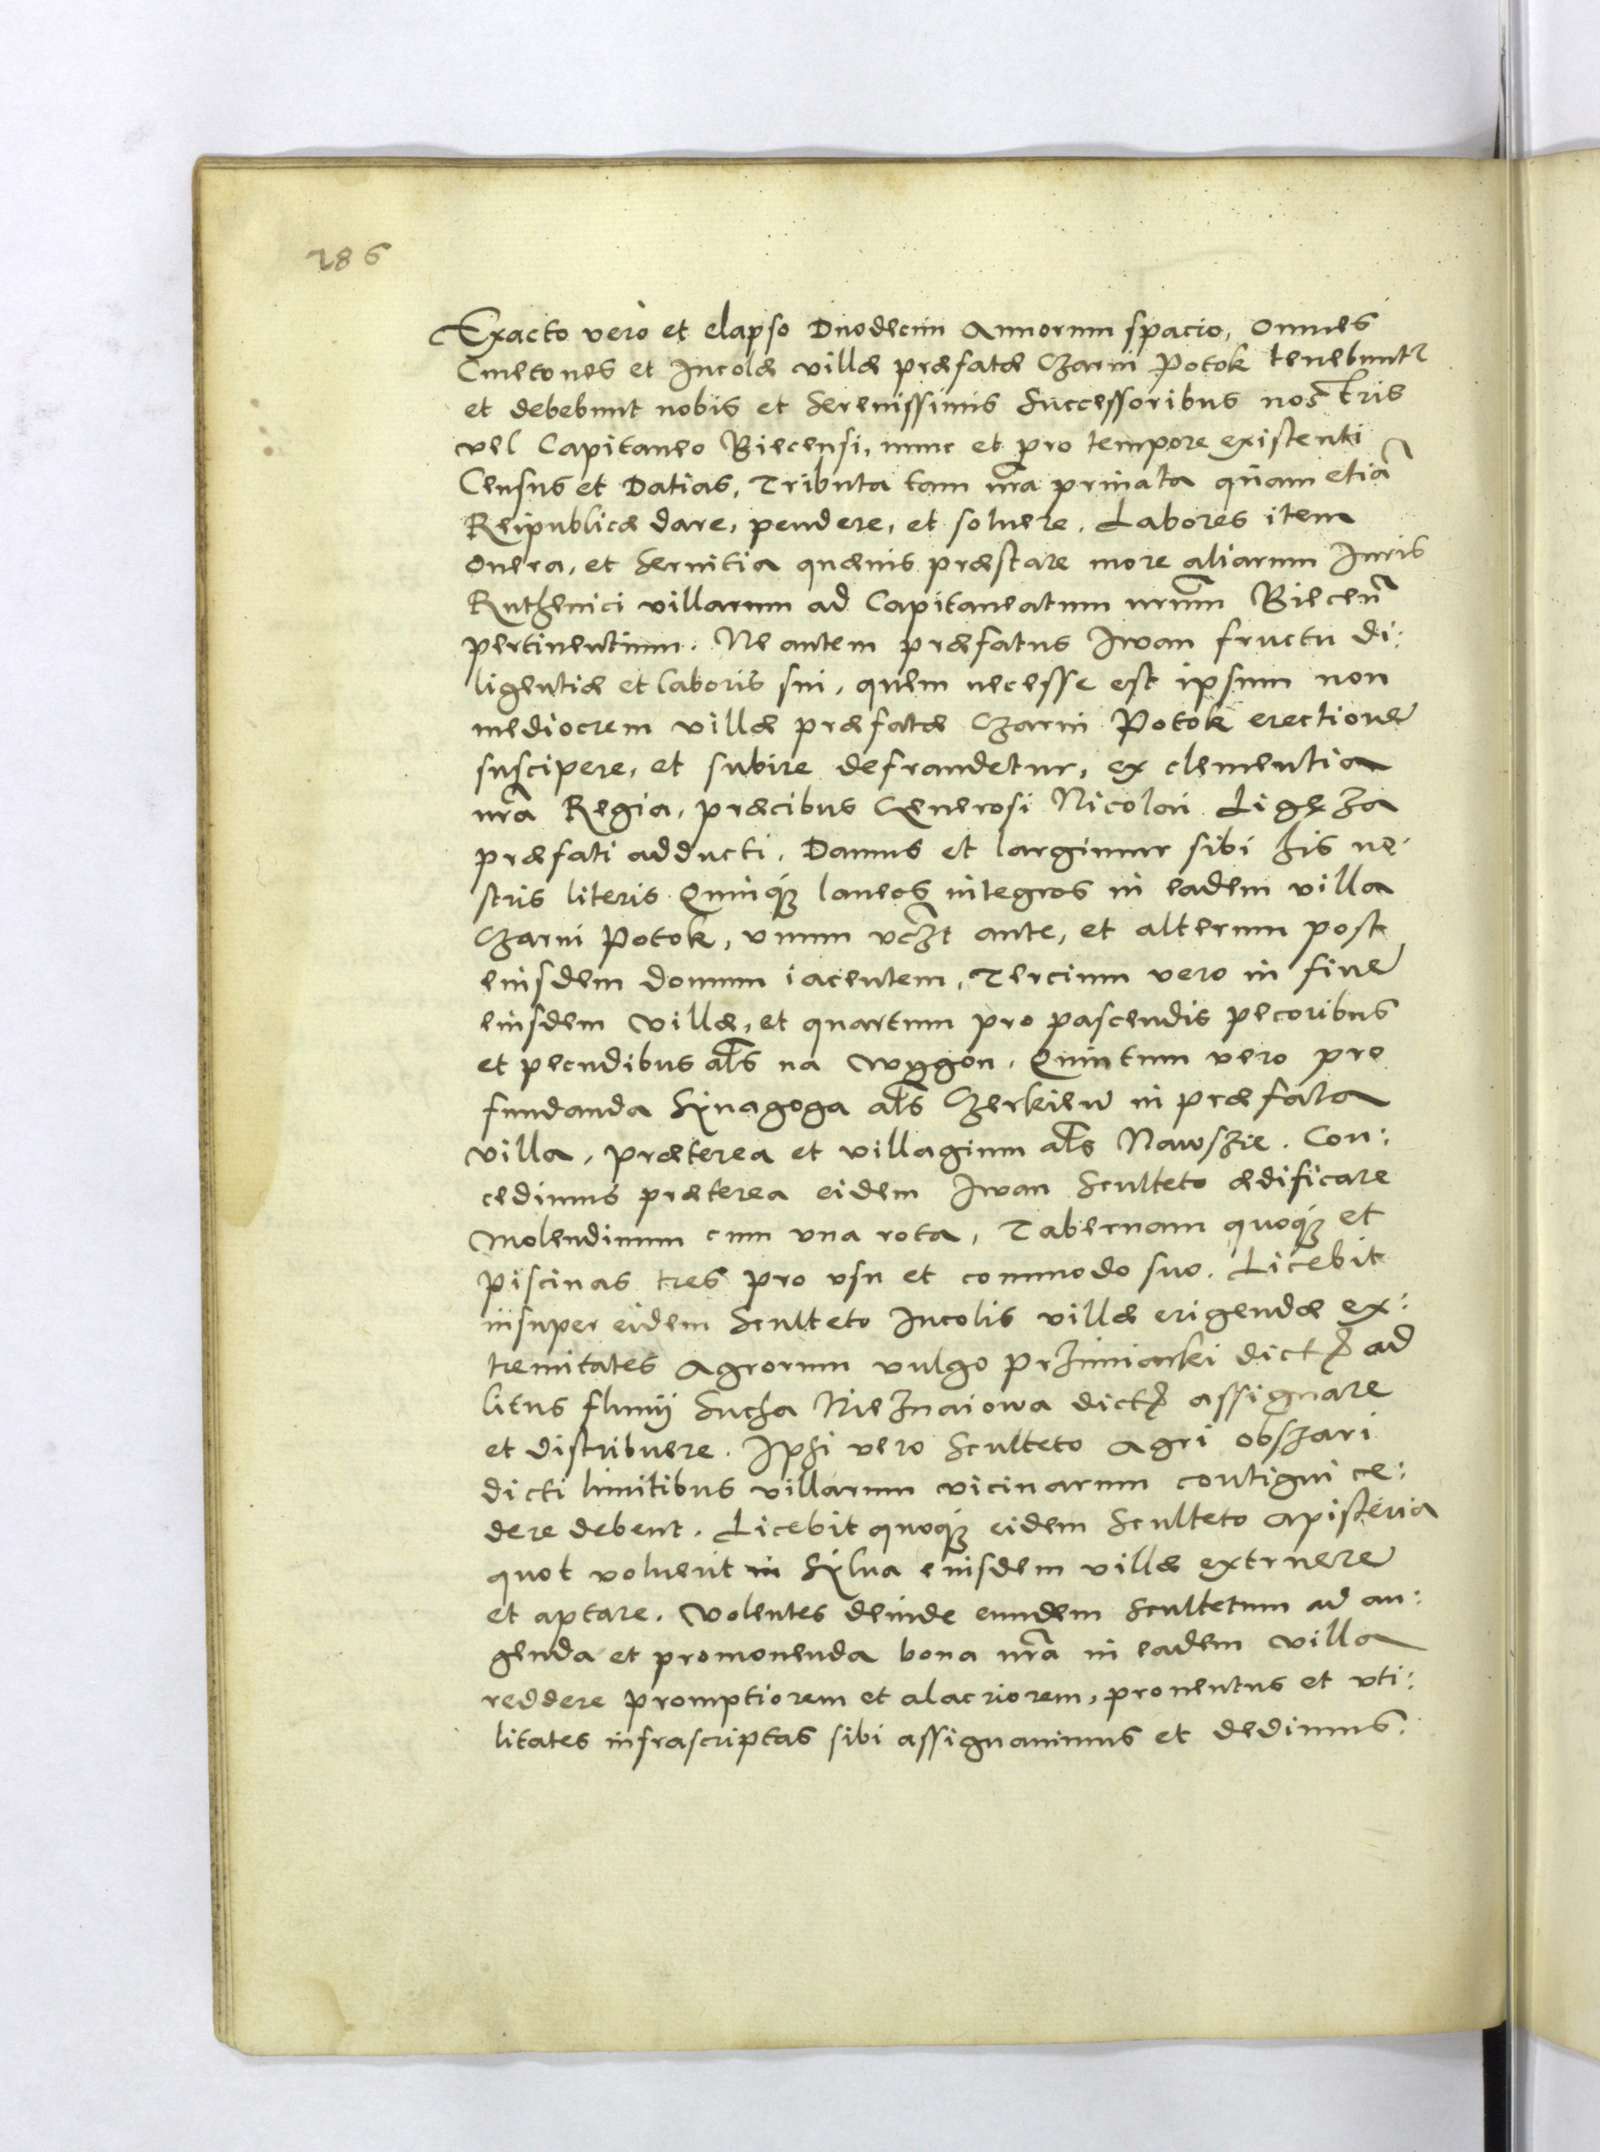 186
Exacto vero et elapso Duodecim Annorum spacio, omnes
Cmetones et Incolæ villæ præfatæ Czarni Potok tenebuntr
et debebunt nobis et Serenissimis Successoribus nostris
vel Capitaneo Biecensi, nunc et pro tempore existenti
Census et Datias, Tributa tam nra priuata quam etiã
Reipublicæ dare, pendere, et soluere. Labores item
onera, et Seruitia quæuis præstare more aliarum Iuris
Ruthenici villarum ad Capitaneatum nrum Biecen
pertinentium. Ne autem præfatus Iwan fructu di:
ligentiæ et laboris sui, quem necesse est ipsum non
mediocrem villæ præfatæ Czarni Potok erectione
suscipere, et subire defraudetur, ex clementia
nra Regia, præcibus Generosi Nicolai Ligęza
præfati adducti. Damus et largimur sibi his no:
stris literis Quinque laneos integros in eadem villa
Czarni Potok, vnum vczt ante, et alterum post
eiusdem domum iacentem, Tercium vero in fine
eiusdem villæ, et quartum pro pascendis pecoribus
et pecudibus als na wygon. Quintum vero pro
fundanda Synagoga als Czerkiew in præfata
villa, præterea et villagium als Nawszie. Con:
cedimus præterea eidem Iwan Sculteto ædificare
molendinum cum vna rota, Tabernam quoque et
piscinas tres pro vsu et commodo suo. Licebit
insuper eidem Sculteto Incolis villæ erigendæ ex:
tremitates Agrorum vulgo przimiarki dict ad
litus fluuij Sucha Nieznaiowa dict assignare
et distribuere. Ipsi vero Sculteto Agri obszari
dicti limitibus villarum vicinarum contigui ce:
dere debent. Licebit quoque eidem Sculteto Apisteria
quot voluerit in Sylua eiusdem villæ extruere
et aptare. Volentes deinde eundem Scultetum ad au:
genda et promouenda bona nra in eadem villa
reddere promptiorem et alacriorem, prouentus et vti:
litates infrascriptas sibi assignauimus et dedimus.